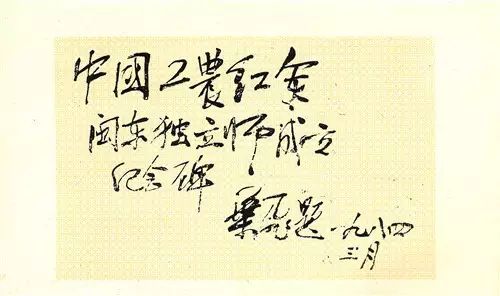 中国工農红军
闽东独立师成立
纪念碑
葉飞题 一九八四
三月